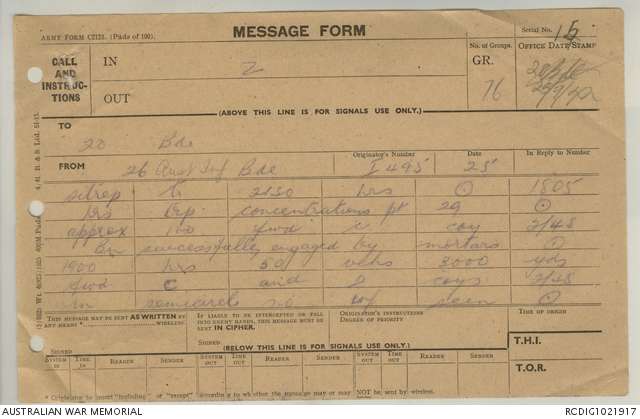 ARMY FORM C2128. (Pads of 100).
MESSAGE FORM
Serial No. 15
CALL AND INSTRUCTIONS
IN
Z
OUT
No. of Groups.
GR.
76
OFFICE DATE STAMP
20 Bde
25/9/42
(ABOVE THIS LINE IS FOR SIGNALS USE ONLY.)
TO
20 Bde
FROM
26 Aust Inf Bde
Originator's Number
I 495
Date
25
In Reply to Number
sitrep to 2130 hrs ⊙ 1805
hrs Enp concentrations pt 29 ⊙
approx 100 fwd C coy 2/48
Bn successfully engaged by mortars ⊙
1900 hrs 50 vehs 3000 yds
fwd C and D coys 2/48
Bn no seen ⊙
THIS MESSAGE MAY BE SENT AS WRITTEN BY ANY MEANS *
WIRELESS.
SIGNED
IF LIABLE TO BE INTERCEPTED OR FALL INTO ENEMY HANDS, THIS MESSAGE MUST BE SENT IN CIPHER.
SIGNED
ORIGINATOR'S INSTRUCTIONS
DEGREE OF PRIORITY
TIME OF ORIGIN
(BELOW THIS LINE IS FOR SIGNALS USE ONLY.)
T.H.I.
T.O.R.
SYSTEM IN
TIME IN
READER
SENDER
SYSTEM OUT
TIME OUT
READER
SENDER
SYSTEM OUT
TIME OUT
READER
SENDER
* Originator to insert "including" or "except" according to whether the message may or may NOT be sent by wireless.
AUSTRALIAN WAR MEMORIAL
RCDIG1021917